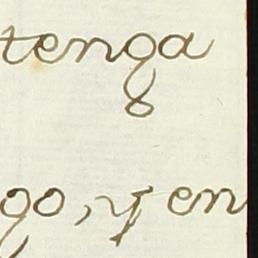 tenga
go, y en